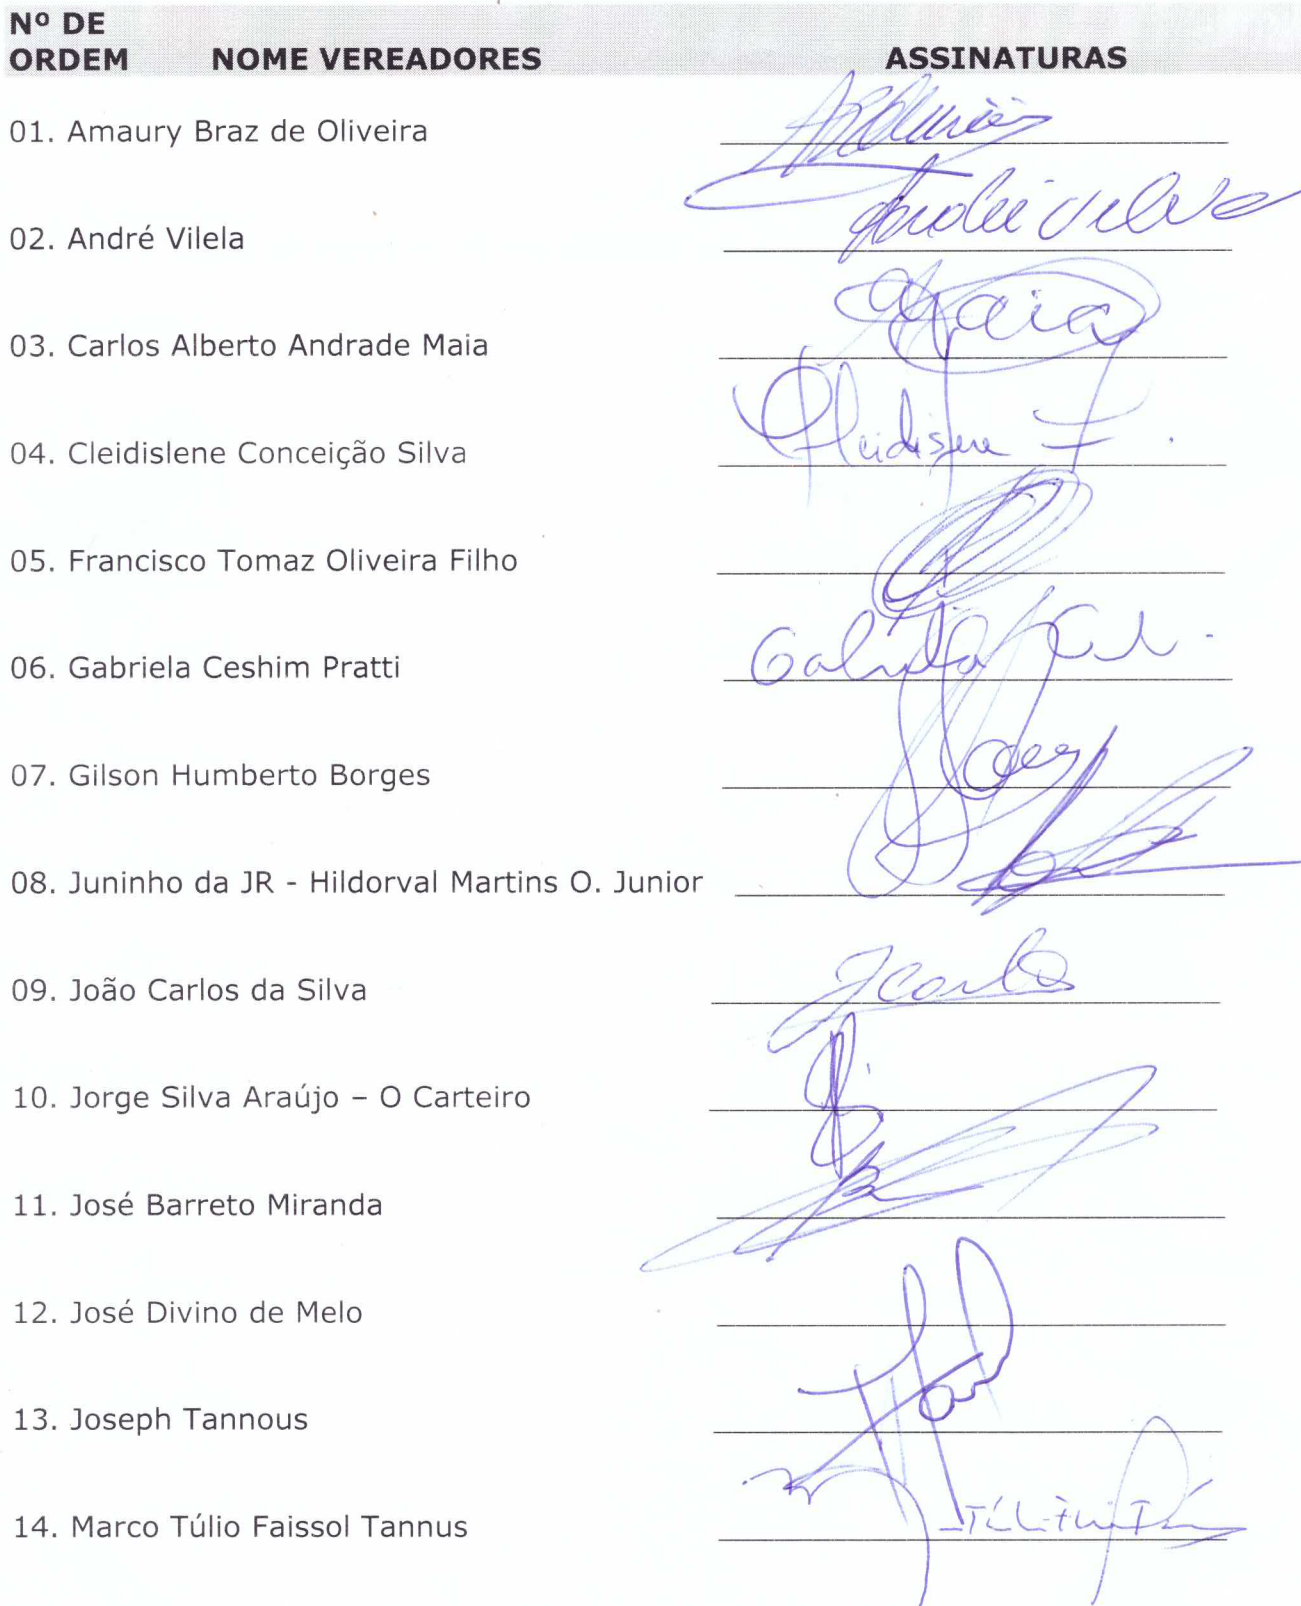 Nº DE
ORDEM NOME VEREADORES ASSINATURAS
01. Amaury Braz de Oliveira
02. André Vilela
03. Carlos Alberto Andrade Maia Maia
04. Cleidislene Conceição Silva Cleidislene
05. Francisco Tomaz Oliveira Filho
06. Gabriela Ceshim Pratti Gabriela
07. Gilson Humberto Borges
08. Juninho da JR - Hildorval Martins O. Junior
09. João Carlos da Silva JCarlos
10. Jorge Silva Araújo – O Carteiro
11. José Barreto Miranda
12. José Divino de Melo
13. Joseph Tannous
14. Marco Túlio Faissol Tannus